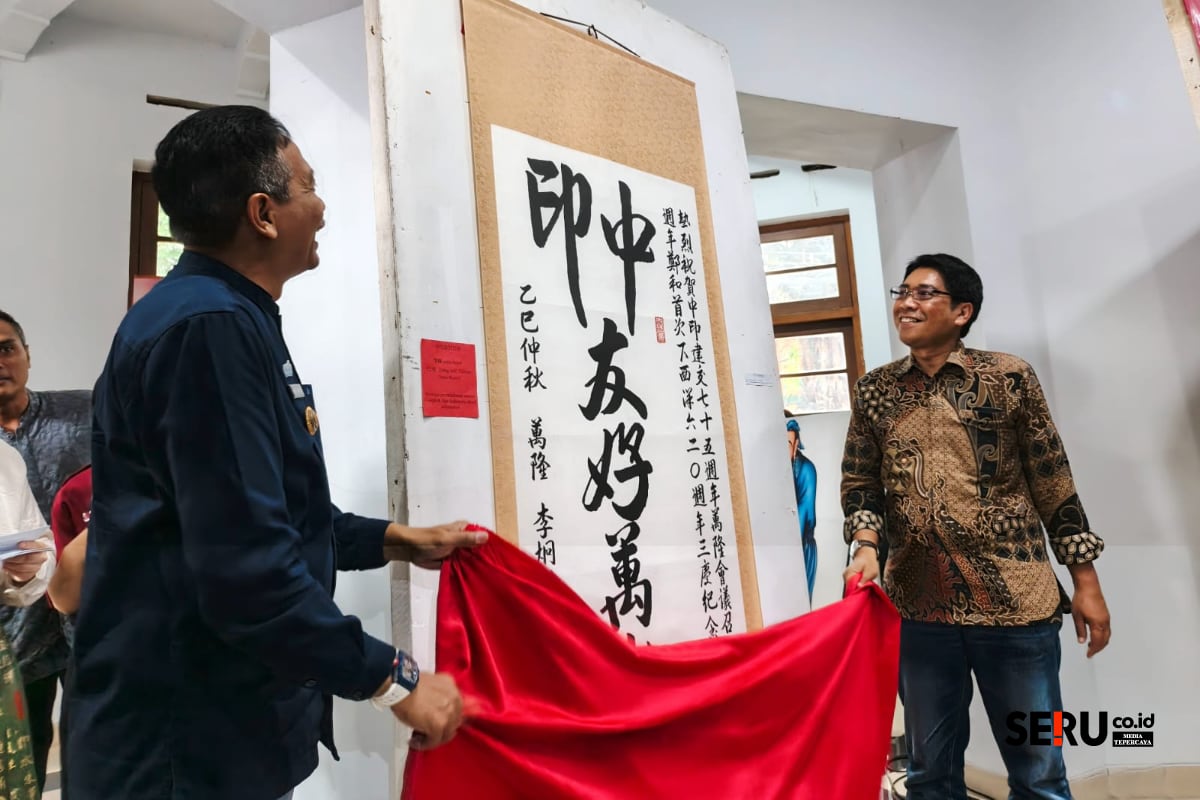 熱烈祝賀中印建交七十五週年萬隆會議召
週年鄭和首次下西洋六二〇週年三慶紀念
中印
友好萬
乙巳仲秋 萬隆 李
SE!RU co.id
MEDIA
TEPERCAYA